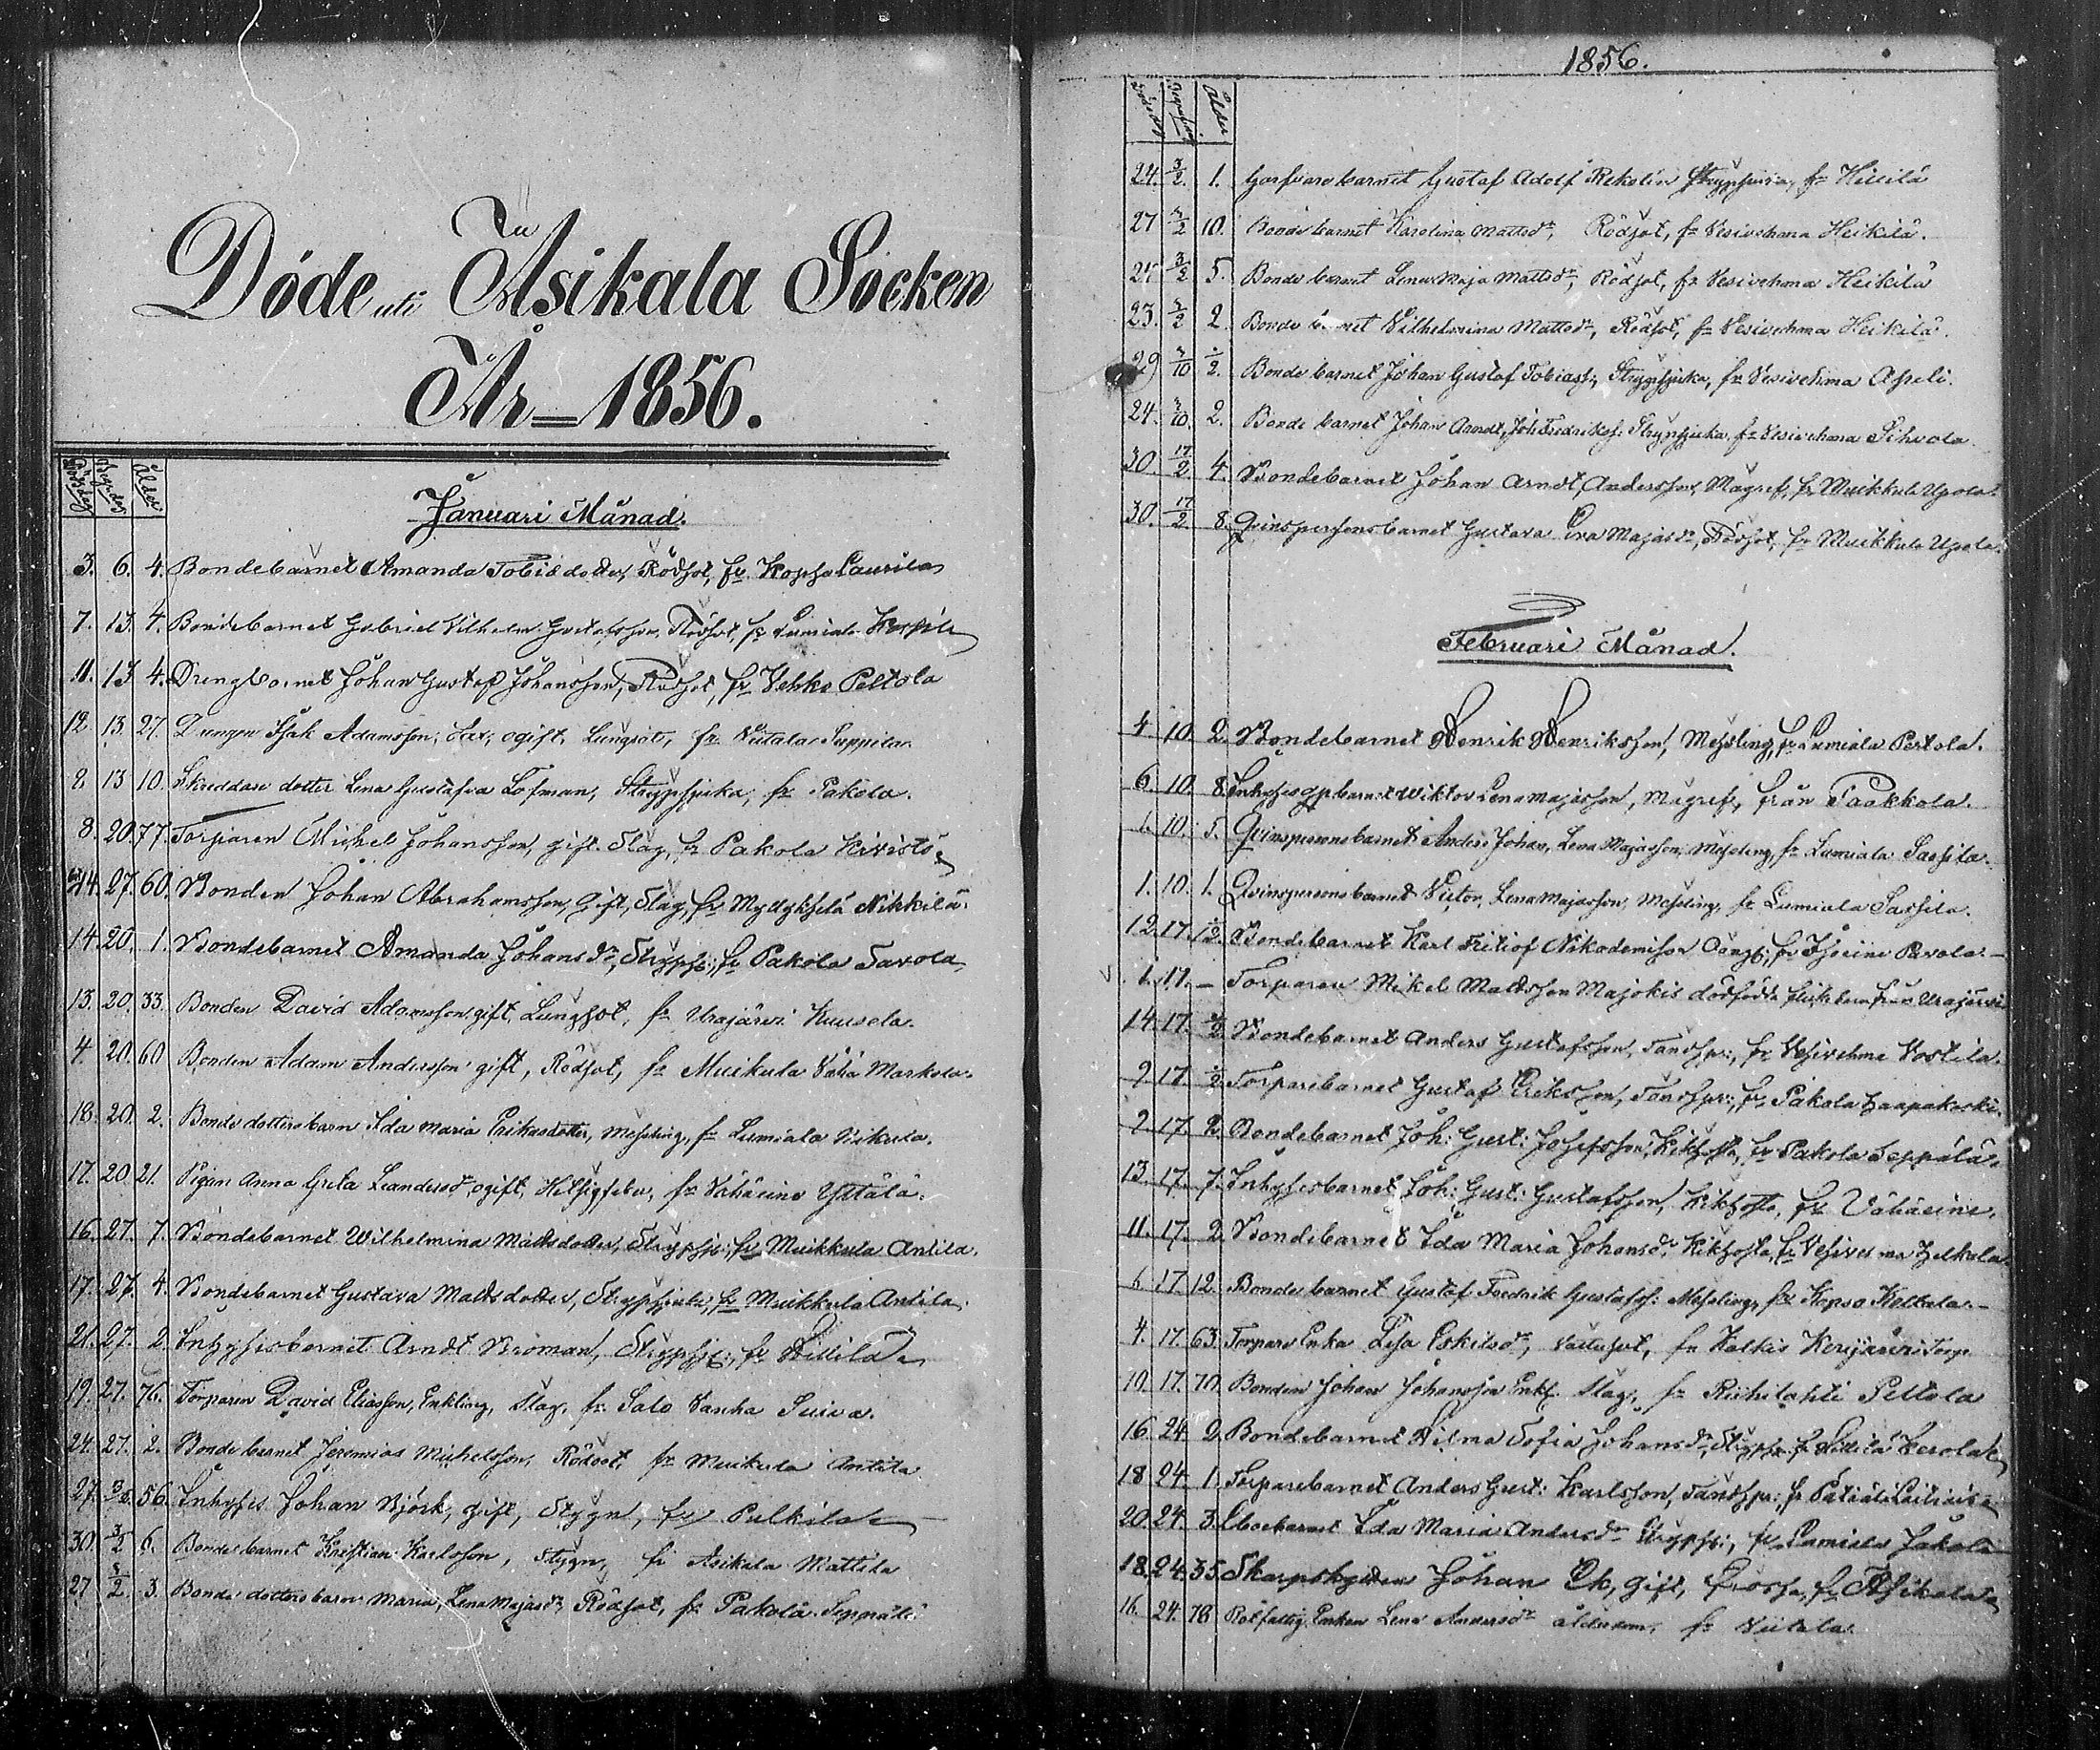 Döde uti Asikala Socken
År 1856.
Dödsdag Begr: dag Ålder
Januari Månad.
3. 6. 4. Bondebarnet Amanda Tobiidotter, Rödsot, fr. Kopso Laurila
7. 13. 4. Bondebarnet Gabriel Vilhelm Gustafsson, Rödsot, fr Lumiala
11. 13 4. Drengbarnet Johan Gustaf Johansson, Rödsot, fr. Vehko Peltola
12 13. 27. Drengen Isak Adamsson, ogift, Lungsot, fr Viitala Pappila
2 13 10. Skreddare dotter Lena Gustafva Löfman, Strypsjuka, fr Pakola.
8. 20. 77. Torparen Michel Johansson, gift. Slag, fr Pakola Kivistö
14. 27. 60. Bonden Johan Abrahamsson, gift, Slag, fr Myllykselä Nikkilä.
14. 20. 1. Bondebarnet Amanda Johansdr, Strypsj:, fr Pakola Tavola
13. 20. 33. Bonden David Adamsson gift, Lungsot, fr Urajärvi Kuusela.
4. 20. 60 Bonden Adam Andersson gift, Rödsot, fr Muikula Vähä Markola.
18. 20. 2. Bonde dotters barn Ida Maria Eriksdotter, Messling, fr Lumiala
17. 20. 21. Pigan Anna Greta Leandersdr ogift, fr Vähäeino Yttälä.
16. 27. 7. Bondebarnet Wilhelmina Mattsdotter, Strypsj:, fr Muikkula Antila.
17. 27. 4. Bondebarnet Gustava Mattsdotter, Strypsjuka, fr Muikkula Antila.
21. 27. 2. Inhysesbarnet Arndt Broman, Strypsj:, fr
19. 27. 76. Torparen David Eliasson, Enkling, Slag, fr Salo Vanha
24. 27. 2. Bonde barnet Jeremias Michelsson, Rödsot, fr Muikula Antila
27. 56. Inhyses Johan Björk, gift, Stygn, fr Pulkila
30. 3/2 6. Bonde barnet Kristian Karlsson, Stygn, fr Asikala Mattila
27 3/2 3. Bonde dotters barn Maria, Lena Majasdr, Rödsot, fr Pakola Seppälä
1856.
Dödsdag Begrafning Ålder
24. 3/2. 1. Garfvare barnet Gustaf Adolf Rekolin Strypsjuka, fr
27 3/2 10. Bonde barnet Karolina Mattsdr, Rödsot, fr Vesivehma Heikilä.
3/2 5. Bonde barnet Lena Maja Mattsdr, Rödsot, fr Vesivehma Heikilä
23. 3/2 2. Bonde barnet Vilhelmina Mattsdr, Rödsot, fr Vesivehma Heikilä.
29 2. Bonde barnet Johan Gustaf Tobiass:, Strypsjuka, fr Vesivehma Apeli.
24. 2. Bonde barnet Johan Arndt, Joh: Fredrikss: Strypsjuka, fr Vesivehma Sihvola
30. 17/2 4. Bondebarnet Johan Arndt, Andersson, Magref, fr Muikkula Upola.
30. 17/2 8. Qvinspersonsbarnet Gustava Eva Majasdr, Rödsot, fr Muikkula Upola.
Februari Månad.
4. 10. 2. Bondebarnet Henrik Henriksson, Messling, fr Lumiala Pertola.
6. 10. 8. Inhysesgossbarnet Wiktor Lenamajasson, Magref, från Paakkola.
1. 10. 5. Qvinspersonsbarnet Anders Johan, Lena Majasson, Messling, fr Lumiala Passila.
1. 10. 1. Qvinspersonsbarnet Victor, Lena Majasson, Messling, fr Lumiala Passila.
12. 17. 1/2. Bondebarnet Karl Fritiof Nikodemisson fr Isoeine Pavola.
1. 17. — Torparen Mikel Mattsson Majokis dödfödda från Urajärvi
14. 17. 1/2 Bondebarnet Anders Gustafsson, Tandspr:, fr Vesivehma Vostila.
9. 17. 1/2 Torparebarnet Gustaf Eriksson, Tandspr:, fr Pakola Haapakoski.
2. 17. 2. Bondebarnet Joh: Gust: Josefsson, Kikhosta, fr Pakola Seppälä.
13. 17. 7. Inhysesbarnet Joh: Gust: Gustafsson, Kikhosta, fr Vähäeine.
11. 17. 2. Bondebarnet Ida Maria Johansdr, Kikhosta, fr Vesivehma
6. 17. 12. Bonde barnet Gustaf Fredrik Gustafss: Messling, fr Kopso Keltala.
4. 17. 63. Torpare Enka Lisa Eskilsdr, Vattusot, fr Kalkis Kerijärvi Torp.
10. 17. 70. Bonden Johan Johansson Enkl. Slag, fr Riihilahti Peltola
16. 24. 2. Bondebarnet Vilma Sofia Johansdr, Strypsj: fr
18. 24. 1. Torparebarnet Anders Gust: Karlsson, Tandspr: fr
20. 24. 3. Ida Maria Andersdr Strypsj:, fr Lumiala Jakola
18. 24. 35. Skarpskytten Johan Ek, gift, Frossa, fr Asikala
16. 24. 78 Rotfattig Enkan Lena Andersdr ålderdom, fr Viitala.